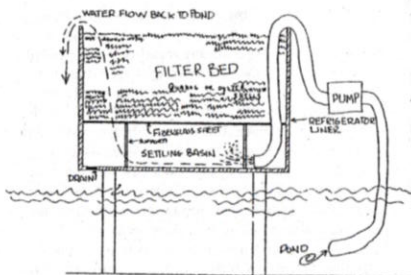 WATER FLOW BACK TO POND
FILTER BED
PUMP
REFRIGERATOR
LINER
FIBERGLASS SHEET
SETTLING BASIN
DRAIN
POND